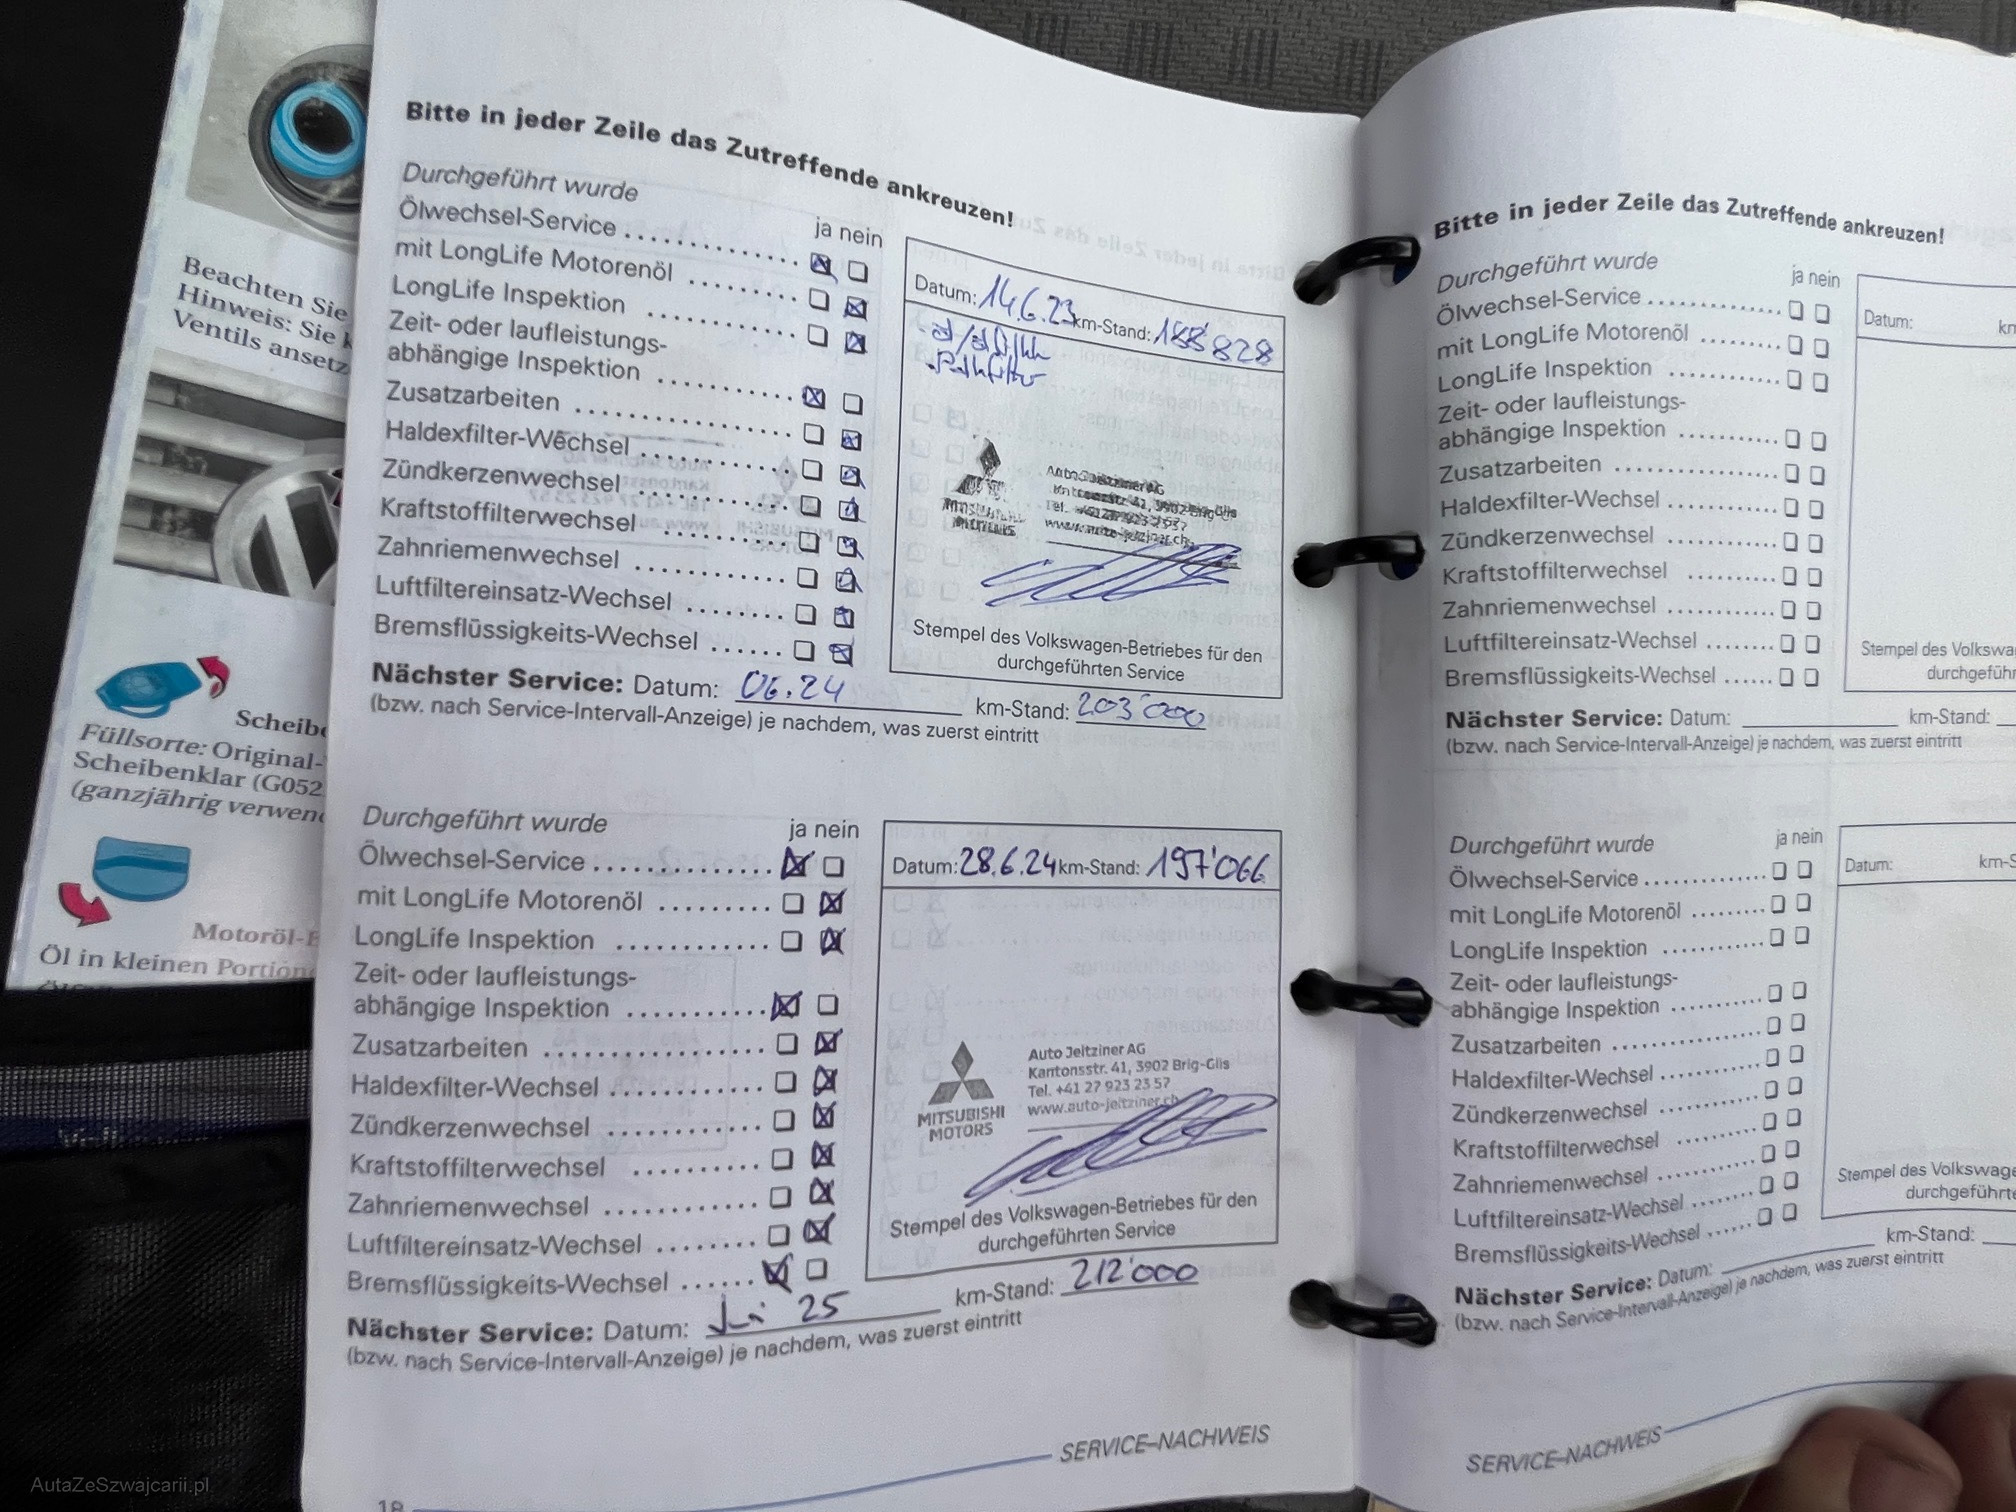 Beachten Sie
Hinweis: Sie k
Ventils ansetz
Scheibe
Füllsorte: Original-
Scheibenklar (G052
(ganzjährig verwend
Motoröl-E
Öl in kleinen Portion
Bitte in jeder Zeile das Zutreffende ankreuzen!
Durchgeführt wurde
ja nein
Ölwechsel-Service
mit LongLife Motorenöl
LongLife Inspektion
Zeit- oder laufleistungs-
abhängige Inspektion
Zusatzarbeiten
Haldexfilter-Wechsel
Zündkerzenwechsel
Kraftstoffilterwechsel
Zahnriemenwechsel
Luftfiltereinsatz-Wechsel
Bremsflüssigkeits-Wechsel
Datum: 14.6.23 km-Stand: 188'828
MITSUBISHI
MOTORS
Auto Jeitziner AG
Kantonsstr. 41, 3902 Brig-Glis
Tel. +41 27 923 23 57
www.auto-jeitziner.ch
Stempel des Volkswagen-Betriebes für den
durchgeführten Service
Nächster Service: Datum: 06.24 km-Stand: 203'000
(bzw. nach Service-Intervall-Anzeige) je nachdem, was zuerst eintritt
Durchgeführt wurde
ja nein
Ölwechsel-Service
mit LongLife Motorenöl
LongLife Inspektion
Zeit- oder laufleistungs-
abhängige Inspektion
Zusatzarbeiten
Haldexfilter-Wechsel
Zündkerzenwechsel
Kraftstoffilterwechsel
Zahnriemenwechsel
Luftfiltereinsatz-Wechsel
Bremsflüssigkeits-Wechsel
Datum: 28.6.24 km-Stand: 197'066
MITSUBISHI
MOTORS
Auto Jeitziner AG
Kantonsstr. 41, 3902 Brig-Glis
Tel. +41 27 923 23 57
www.auto-jeitziner.ch
Stempel des Volkswagen-Betriebes für den
durchgeführten Service
Nächster Service: Datum: 25 km-Stand: 212'000
(bzw. nach Service-Intervall-Anzeige) je nachdem, was zuerst eintritt
SERVICE–NACHWEIS
18
Bitte in jeder Zeile das Zutreffende ankreuzen!
Durchgeführt wurde
ja nein
Ölwechsel-Service
mit LongLife Motorenöl
LongLife Inspektion
Zeit- oder laufleistungs-
abhängige Inspektion
Zusatzarbeiten
Haldexfilter-Wechsel
Zündkerzenwechsel
Kraftstoffilterwechsel
Zahnriemenwechsel
Luftfiltereinsatz-Wechsel
Bremsflüssigkeits-Wechsel
Datum: km
Stempel des Volkswa
durchgeführ
Nächster Service: Datum: km-Stand:
(bzw. nach Service-Intervall-Anzeige) je nachdem, was zuerst eintritt
Durchgeführt wurde
ja nein
Ölwechsel-Service
mit LongLife Motorenöl
LongLife Inspektion
Zeit- oder laufleistungs-
abhängige Inspektion
Zusatzarbeiten
Haldexfilter-Wechsel
Zündkerzenwechsel
Kraftstoffilterwechsel
Zahnriemenwechsel
Luftfiltereinsatz-Wechsel
Bremsflüssigkeits-Wechsel
Datum: km-S
Stempel des Volkswage
durchgeführte
Nächster Service: Datum: km-Stand:
(bzw. nach Service-Intervall-Anzeige) je nachdem, was zuerst eintritt
SERVICE–NACHWEIS
AutaZeSzwajcarii.pl